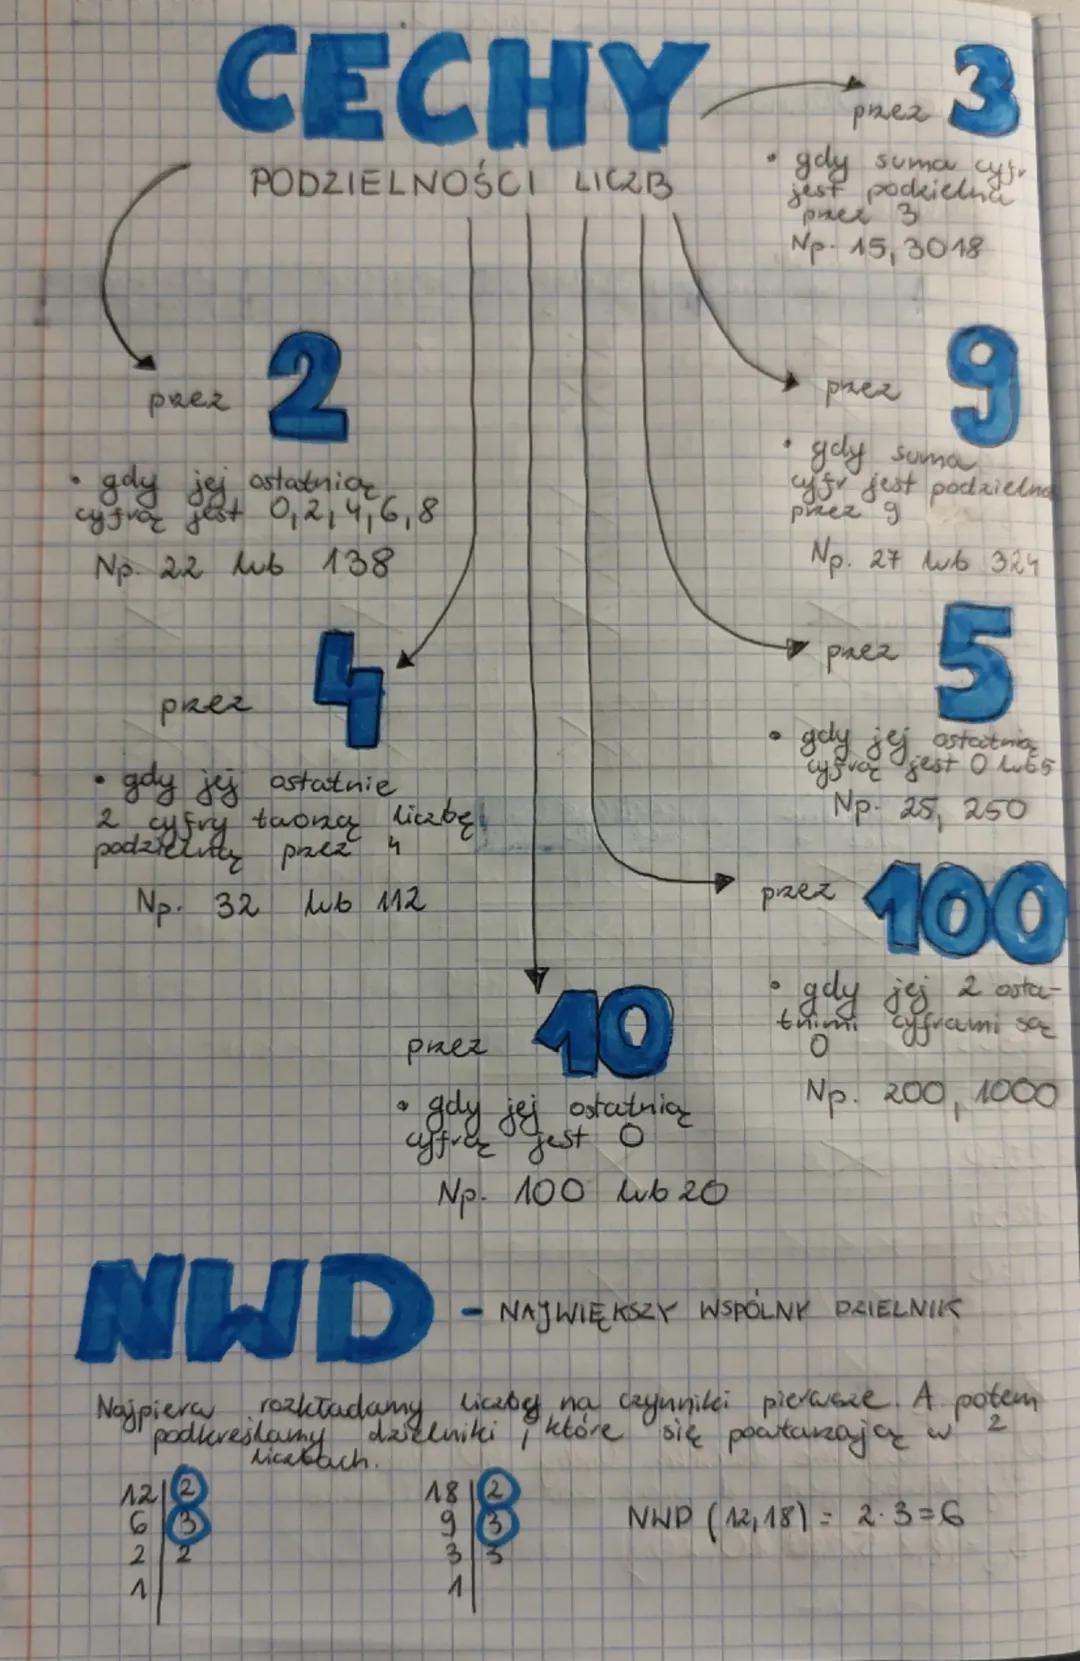 CECHY
PODZIELNOŚCI LICZB
przez 3
• gdy suma cyfr
jest podzielna
przez 3
Np. 15, 3018
przez 2
• gdy jej ostatnią
cyfrą jest 0,2,4,6,8
Np. 22 lub 138
przez 9
• gdy suma
cyfr jest podzielna
przez 9
Np. 27 lub 324
przez 4
• gdy jej ostatnie
2 cyfry tworzą liczbę
podzielną przez 4
Np. 32 lub 112
przez 5
• gdy jej ostatnią
cyfrą jest 0 lub 5
Np. 25, 250
przez 100
• gdy jej 2 osta-
tnimi cyframi są
0
Np. 200, 1000
przez 10
• gdy jej ostatnią
cyfrą jest 0
Np. 100 lub 20
NWD - NAJWIĘKSZY WSPÓLNY DZIELNIK
Najpierw rozkładamy liczby na czynniki pierwsze. A potem
podkreślamy dzielniki, które się powtarzają w 2
liczbach.
12 | 2
6 | 3
2 | 2
1 |
18 | 2
9 | 3
3 | 3
1 |
NWD (12,18) = 2·3=6